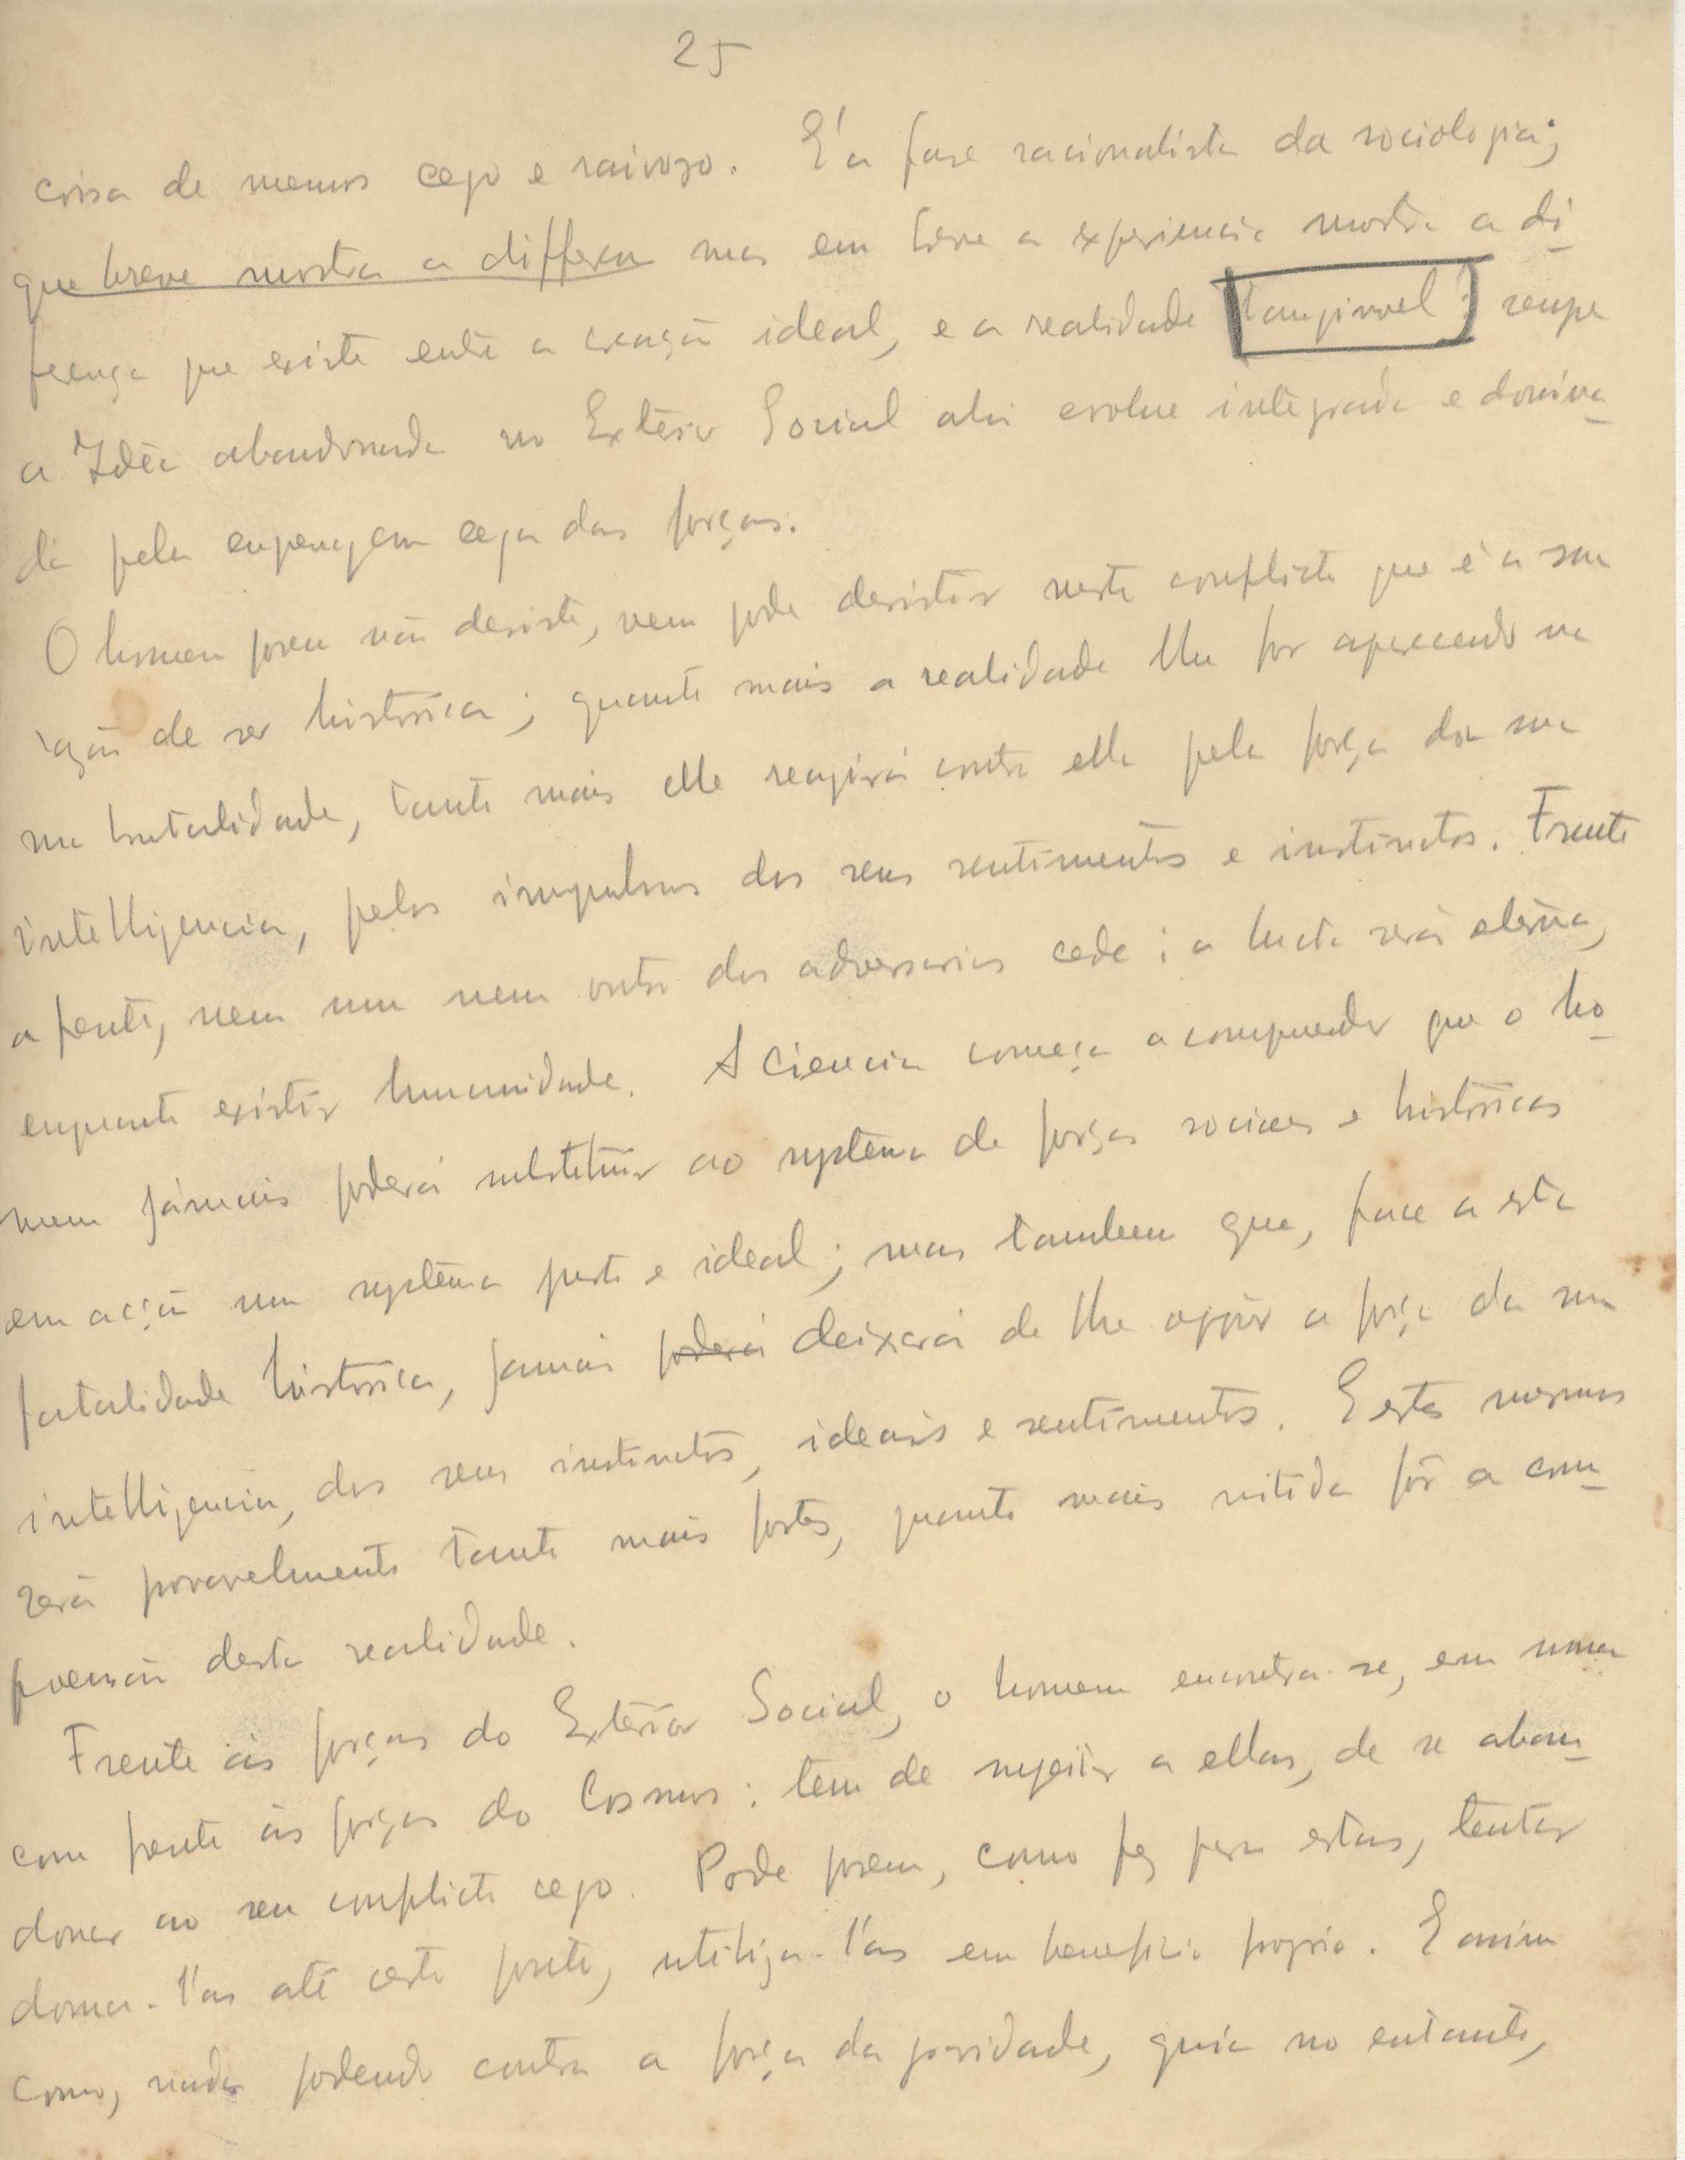 25
coisa de menos cego e raivoso. E' a fase racionalista da sociologia;
que breve mostra a differen mas em breve a experiencia mostra a di-
ferença que existe entre a creação ideal, e a realidade tangivvel:
a Idéa abandonada no Exterior Social ahi evolue integrada e domina-
da pela engrenagem cega das forças.
O homem porem não desiste, nem pode desistir neste conflicto que é a sua
razão de ser historica; quanto mais a realidade lhe for aparecendo na
sua brutalidade, tanto mais elle reagirá contra ella pela força da sua
intelligencia, pelos impulsos dos seus sentimentos e instinctos. Frente
a frente, nem um nem outro dos adversarios cede; a lucta será eterna,
enquanto existir humanidade. A Ciencia começa a comprender que o ho-
mem jámais poderá substituir ao systema de forças sociaes e historicas
em acção um systema justo e ideal; mas tambem que, face a esta
fatalidade historica, jamais poderá deixará de lhe oppôr a força da sua
intelligencia, dos seus instinctos, ideais e sentimentos. E estes mesmos
será provavelmente tanto mais fortes, quanto mais nitida fôr a com-
preensão desta realidade.
Frente ás forças do Exterior Social, o homem encontra-se, em suma
com frente ás forças do Cosmos: tem de sujeitar a ellas, de se aban-
donar ao seu conflicto cego. Pode porem, como fez para estas, tentar
doma-l'as até certo ponto, utiliza-l'as em beneficio proprio. E assim
como, nada podendo contra a força da gravidade, guia no entanto,